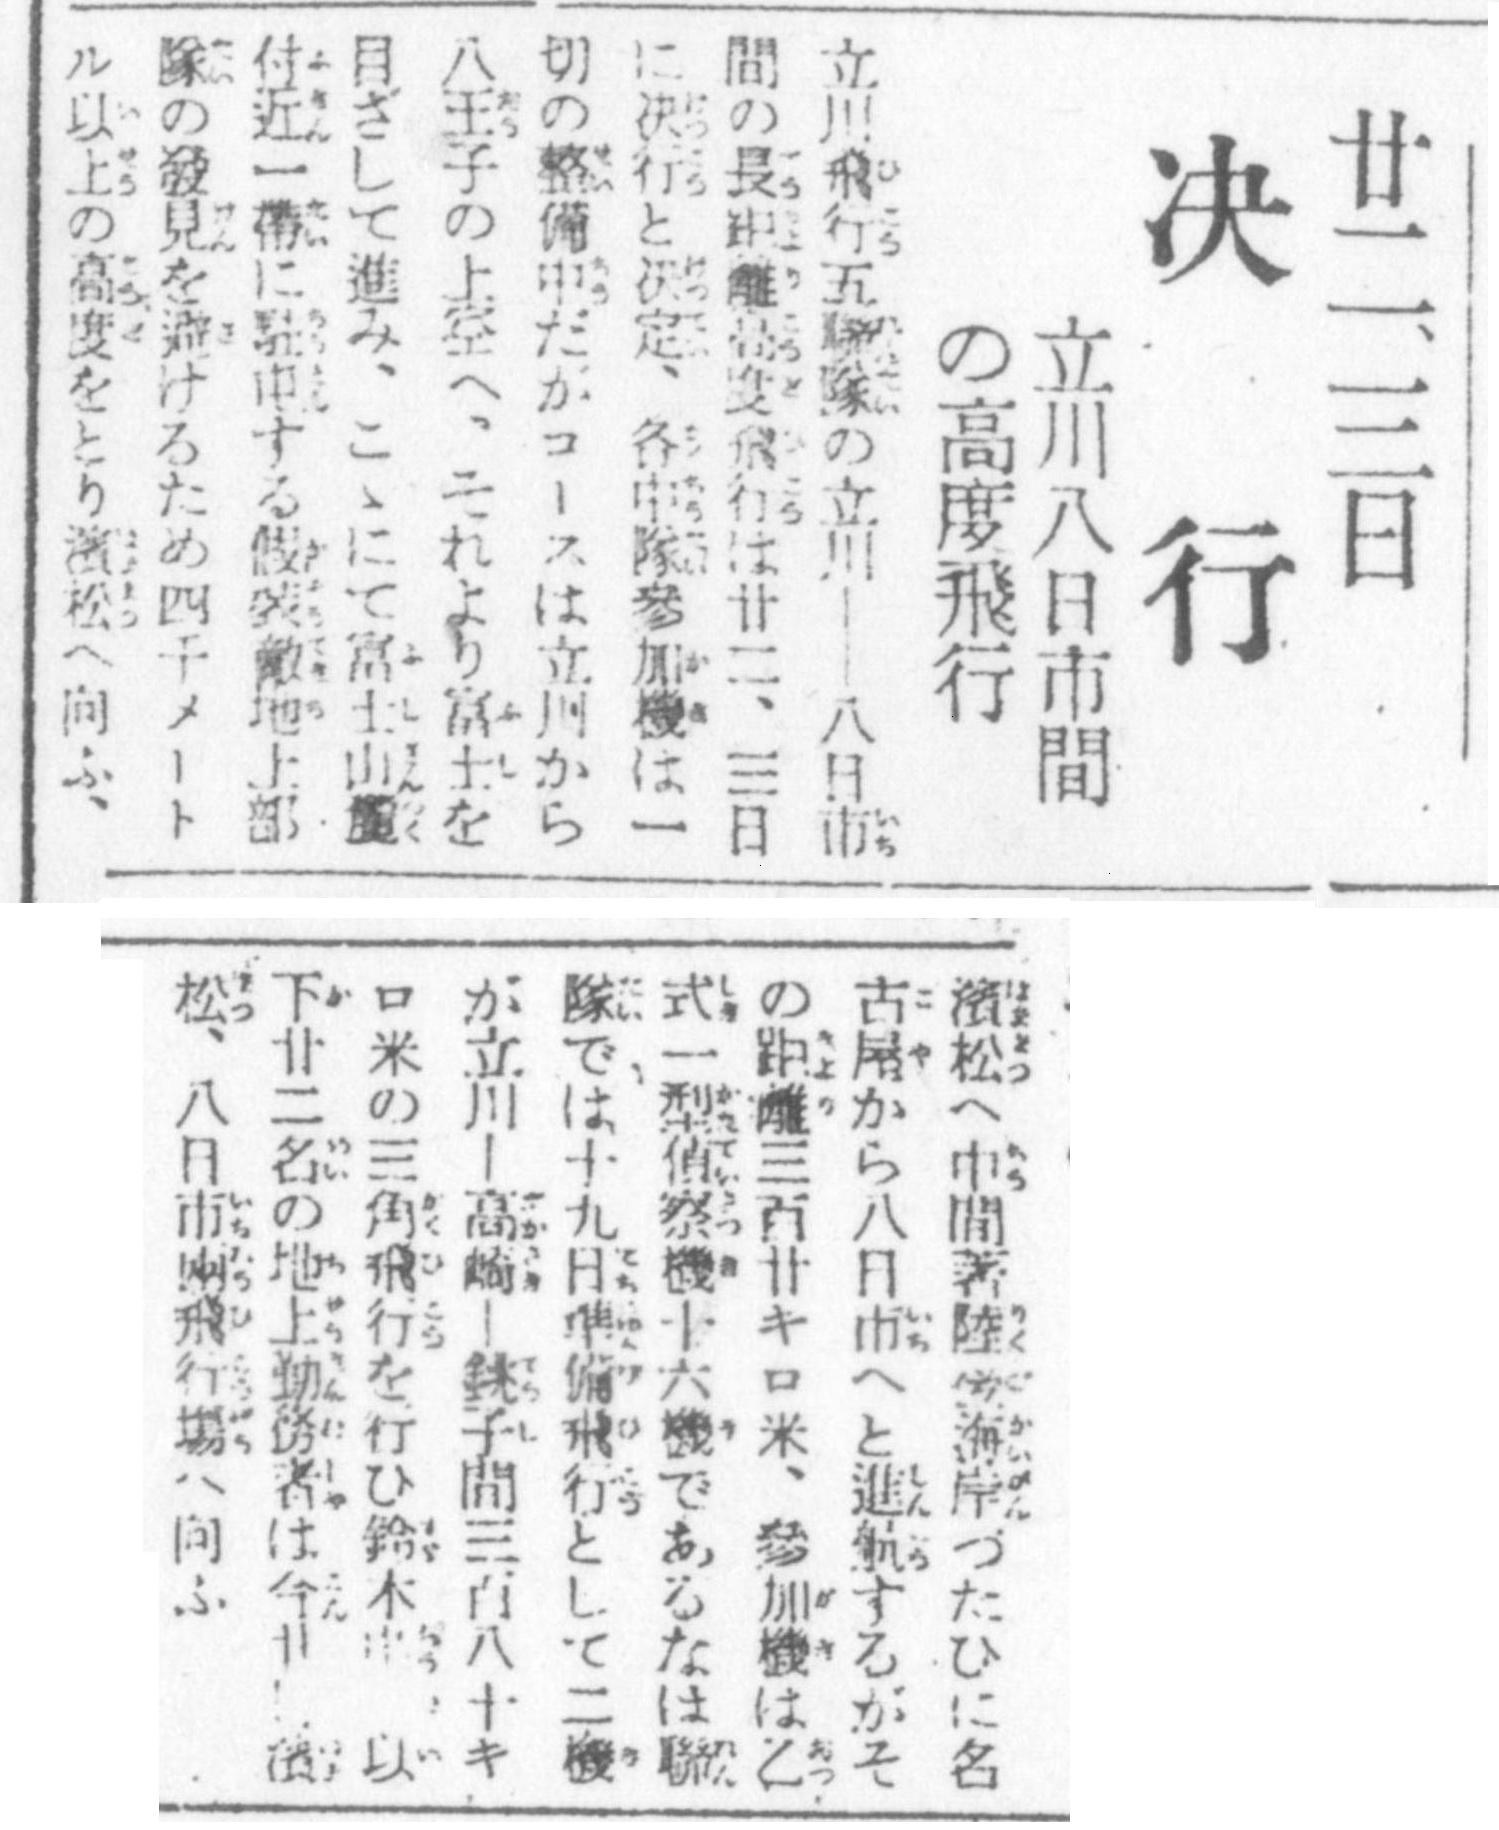 廿二、三日
決行
立川八日市間
の高度飛行
立川飛行五聯隊の立川——八日市
間の長距離高度飛行は廿二、三日
に決行と決定、各中隊參加機は一
切の整備中だがコースは立川から
八王子の上空へ、それより富士を
目ざして進み、こゝにて富士山麓
付近一帶に駐屯する假裝敵地上部
隊の發見を避けるため四千メート
ル以上の高度をとり濱松へ向ふ、
濱松へ中間著陸、海岸づたひに名
古屋から八日市へと進航するがそ
の距離三百廿キロ米、參加機は乙
式一型偵察機十六機であるなは聯
隊では、十九日準備飛行として二機
が立川ー高崎ー銚子間三百八十キ
ロ米の三角飛行を行ひ鈴木中 以
下廿二名の地上勤務者は今廿 濱
松、八日市兩飛行場へ向ふ